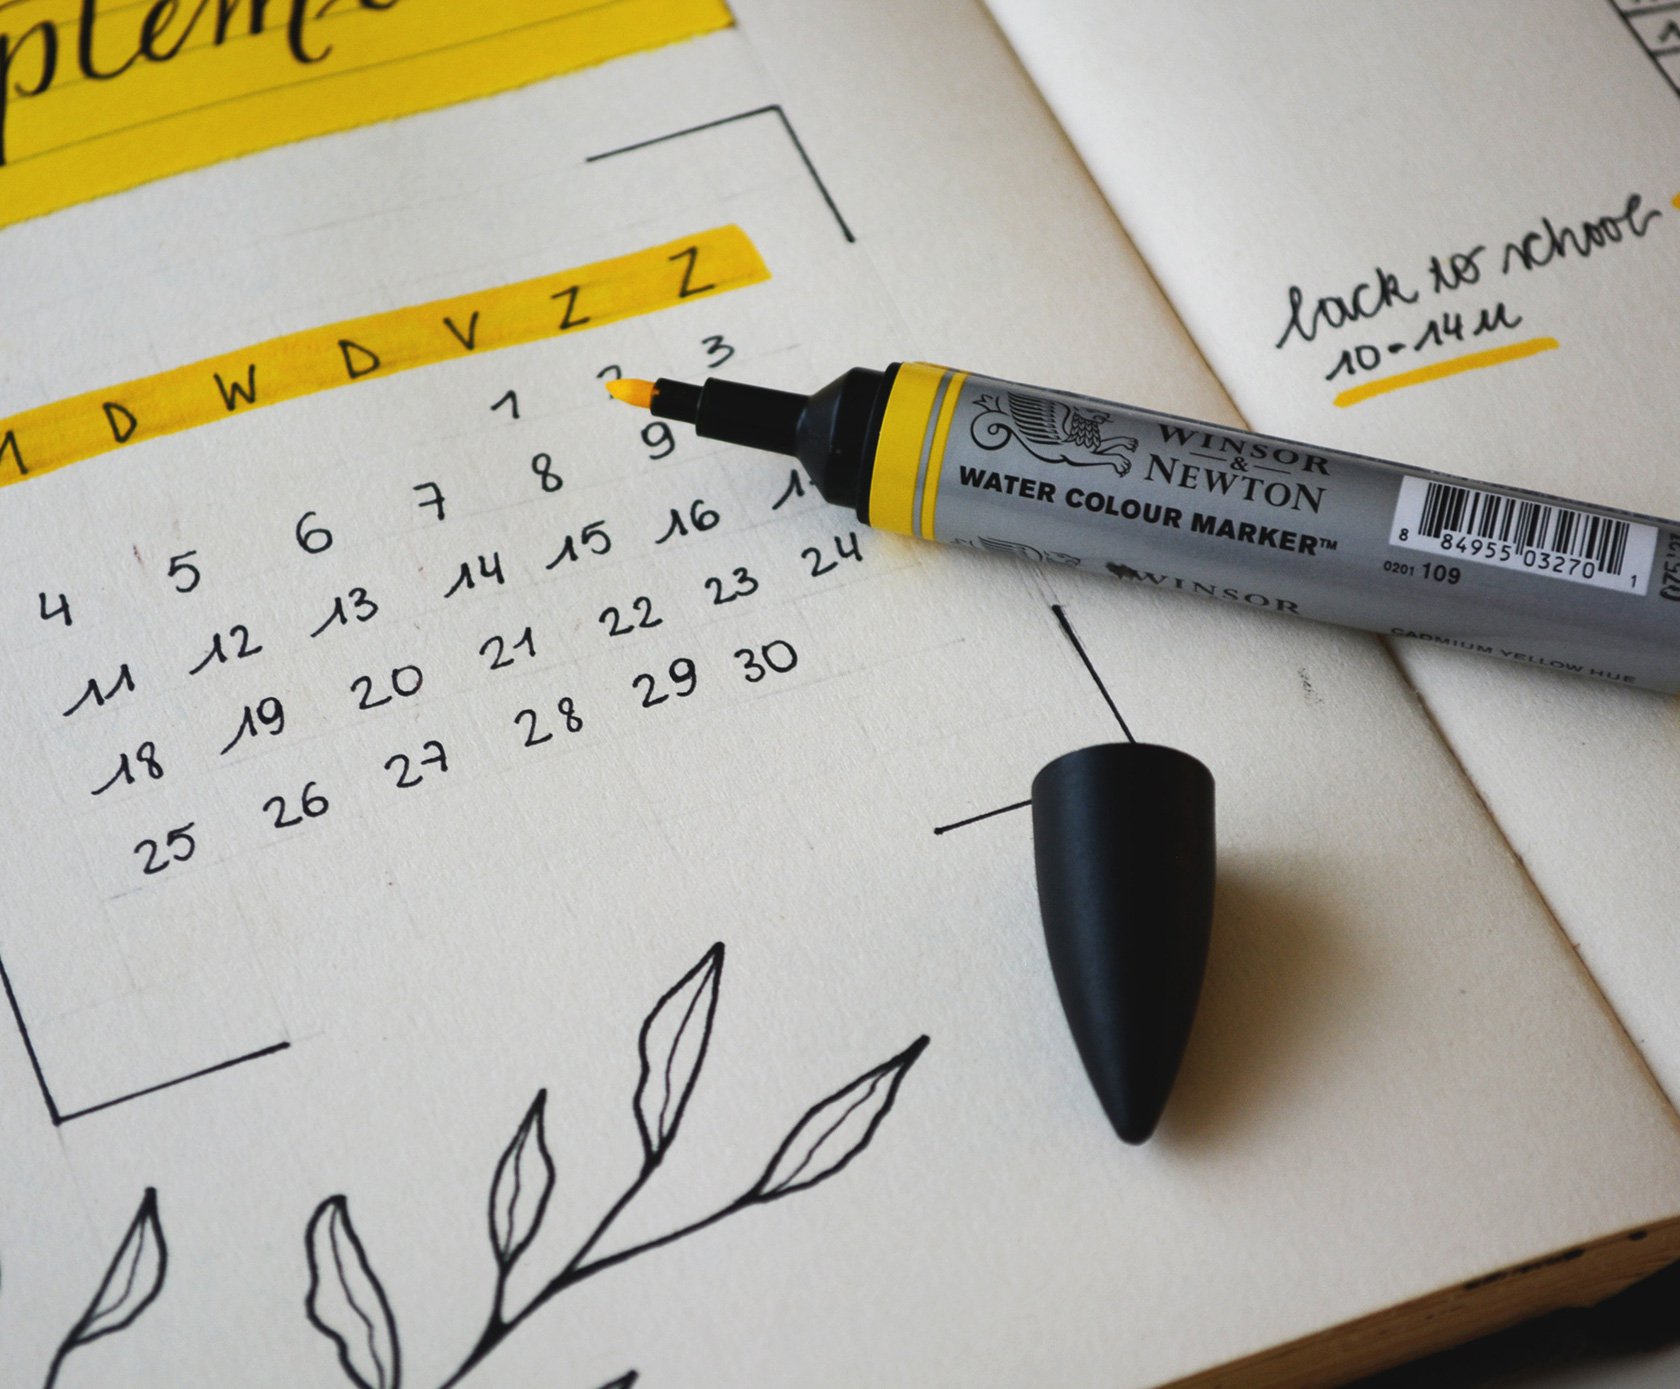 ptem
M D W D V Z Z
1 2 3
4 5 6 7 8 9
11 12 13 14 15 16
18 19 20 21 22 23 24
25 26 27 28 29 30
back to school
10-14u
WINSOR
&
NEWTON
WATER COLOUR MARKER™
8 84955 03270 1
0201 109
WINSOR
CADMIUM YELLOW HUE